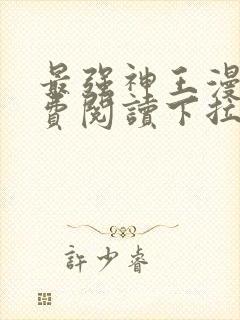 最强神王漫
费閱讀下拉
許少睿